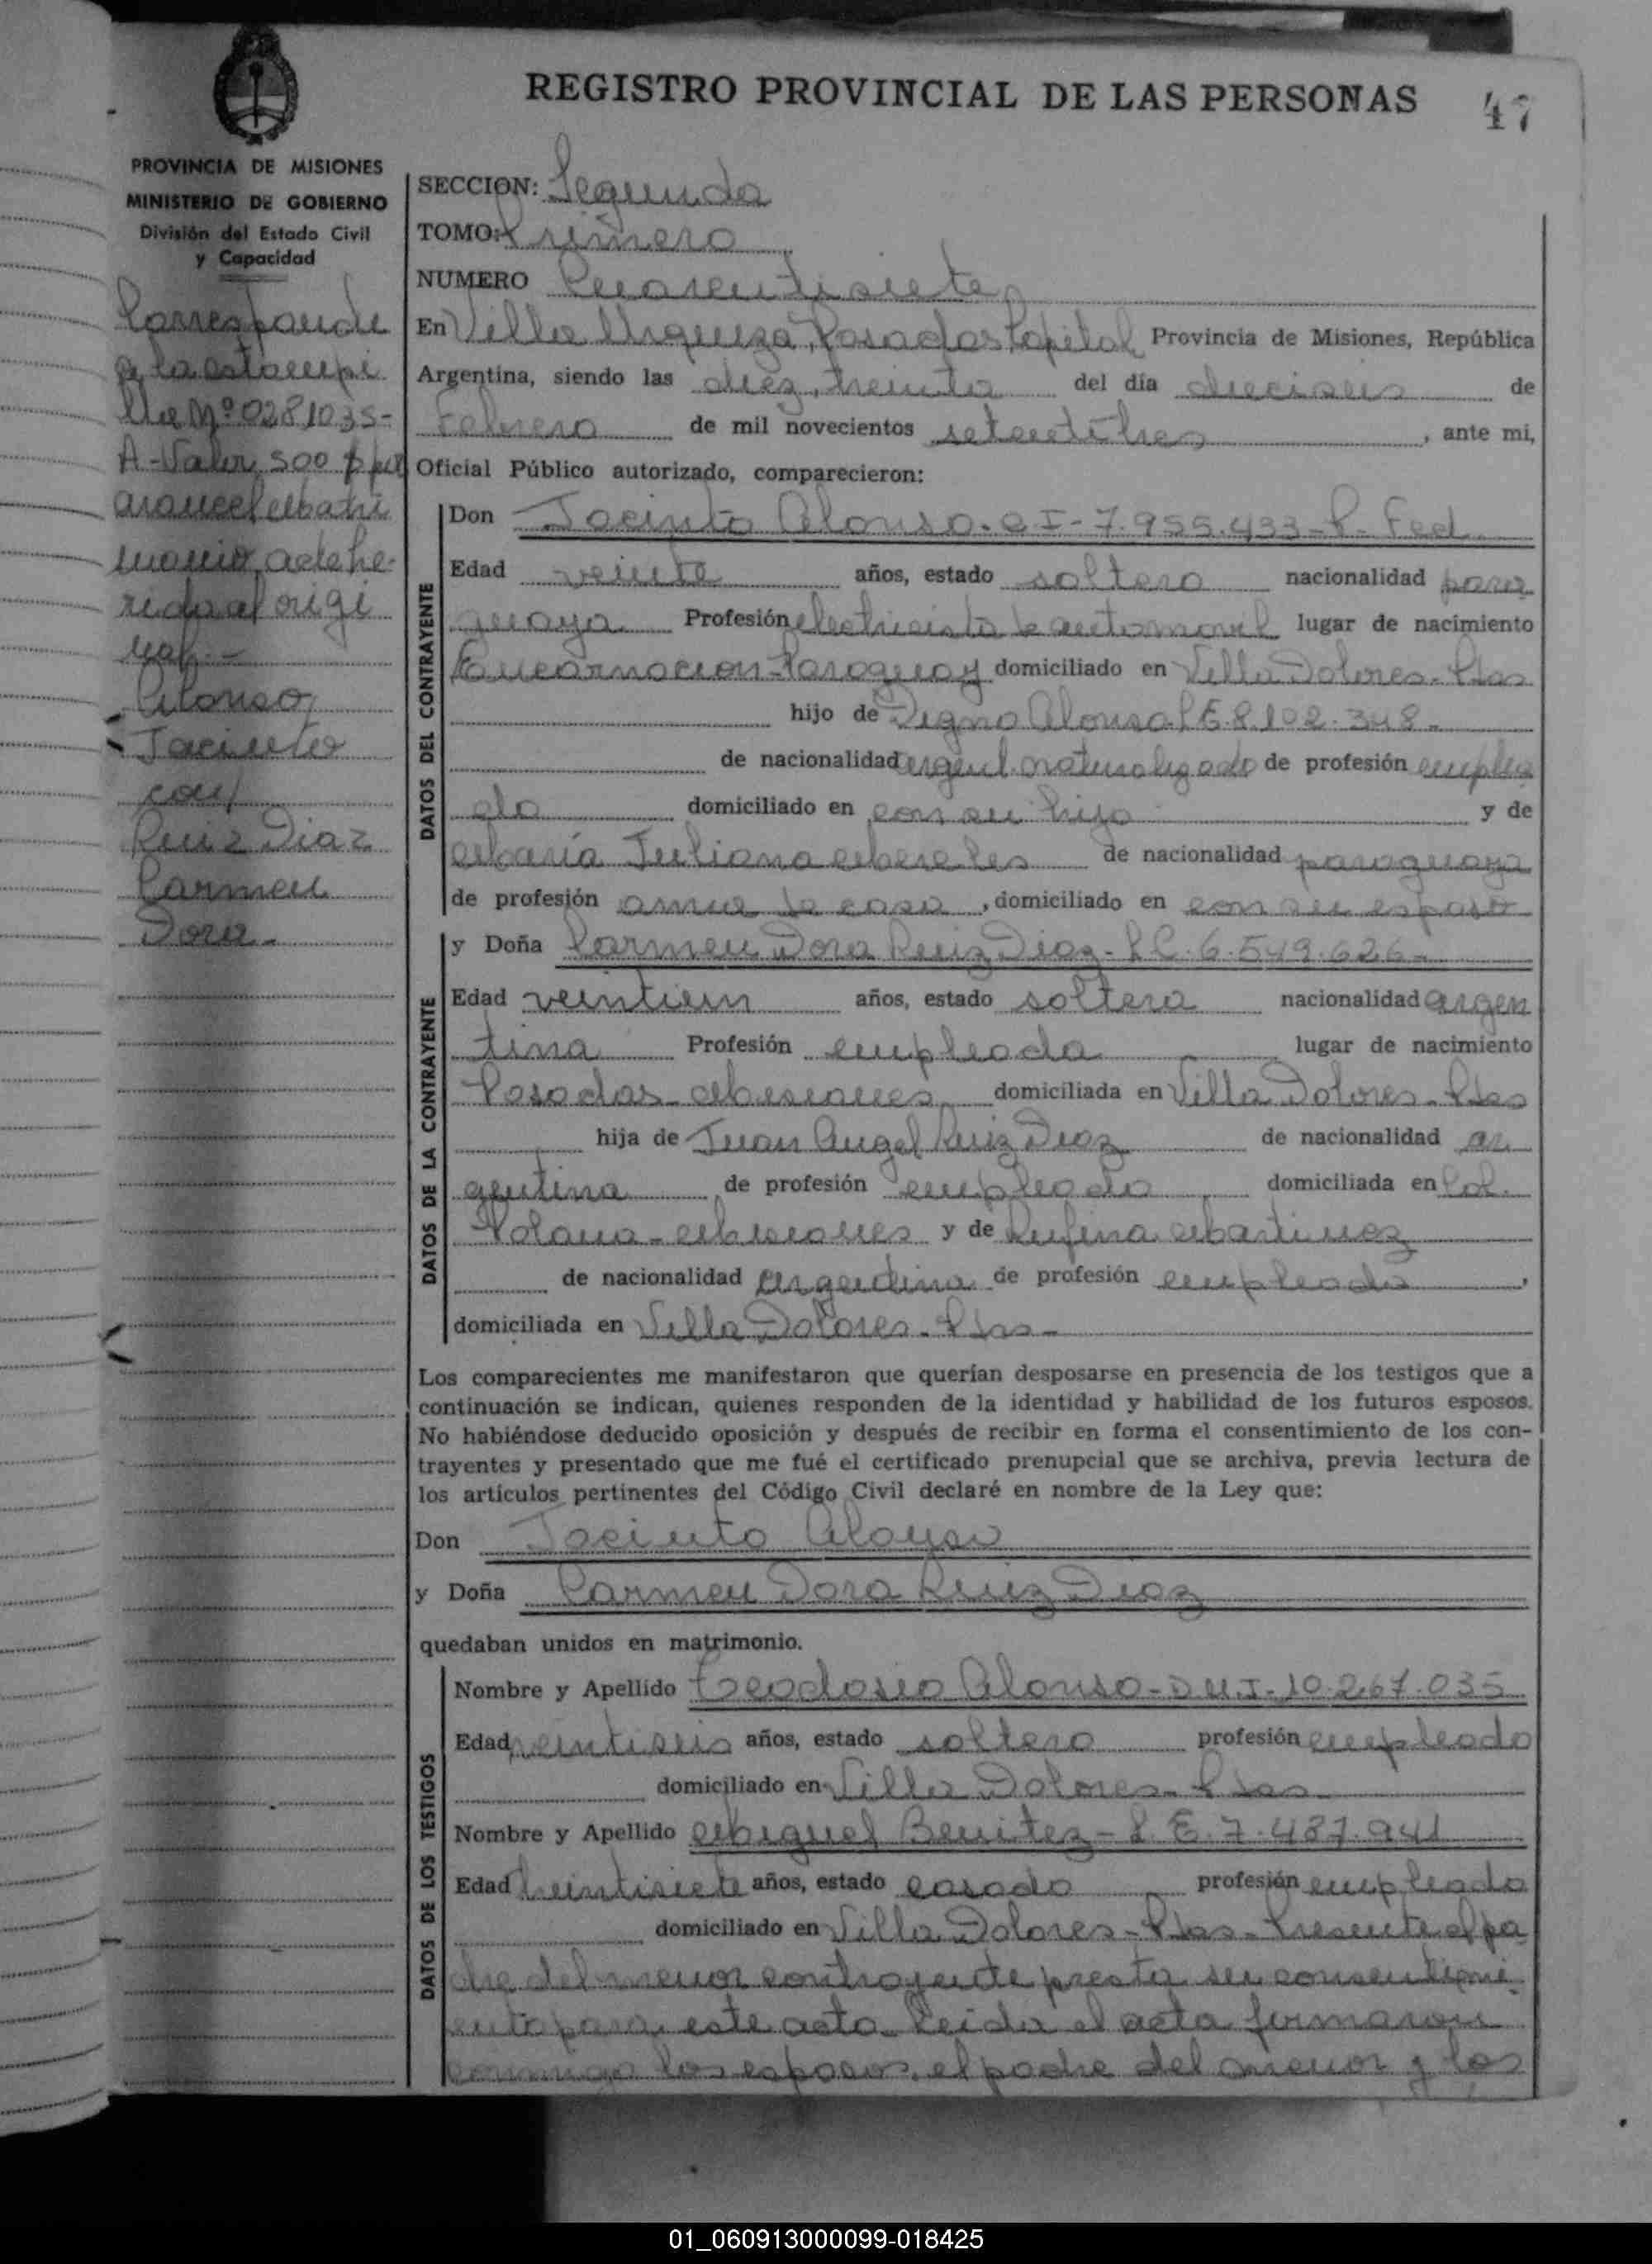 REGISTRO PROVINCIAL DE LAS PERSONAS
47
PROVINCIA DE MISIONES
MINISTERIO DE GOBIERNO
División del Estado Civil
y Capacidad
Corresponde
a la estampi
lla Nº 0281035-
A-Valor 500 $ por
arancel Matri
monio adhe-
rida al origi
nal.-
Alonso
Jacinto
con
Ruiz Diaz
Carmen
Dora-
SECCION: Segunda
TOMO: Primero
NUMERO Cuarentisiete
En Villa Urquiza, Posadas Capital Provincia de Misiones, República
Argentina, siendo las diez, treinta del día dieciseis de
Febrero de mil novecientos setentitres, ante mi,
Oficial Público autorizado, comparecieron:
DATOS DEL CONTRAYENTE
Don Jacinto Alonso. C I-7.955.433-P. Fed.
Edad veinte años, estado soltero nacionalidad para
guaya Profesión electricista de automovil lugar de nacimiento
Encarnacion-Paraguay domiciliado en Villa Dolores-Pdas
hijo de Digno Alonso L E.8.102.348.-
de nacionalidad argent. naturalizado de profesión emplea
do domiciliado en con su hijo y de
Maria Juliana Mereles de nacionalidad paraguaya
de profesión ama de casa, domiciliado en con su esposo
DATOS DE LA CONTRAYENTE
y Doña Carmen Dora Ruiz Diaz-L C.6.549.626-
Edad veintiun años, estado soltera nacionalidad argen
tina Profesión empleada lugar de nacimiento
Posadas-Misiones domiciliada en Villa Dolores-Pdas
hija de Juan Angel Ruiz Diaz de nacionalidad ar
gentina de profesión empleado domiciliada en Col.
Polana-Misiones y de Rufina Martinez
de nacionalidad argentina de profesión empleada,
domiciliada en Villa Dolores-Pdas-
Los comparecientes me manifestaron que querían desposarse en presencia de los testigos que a
continuación se indican, quienes responden de la identidad y habilidad de los futuros esposos.
No habiéndose deducido oposición y después de recibir en forma el consentimiento de los con-
trayentes y presentado que me fué el certificado prenupcial que se archiva, previa lectura de
los artículos pertinentes del Código Civil declaré en nombre de la Ley que:
Don Jacinto Alonso
y Doña Carmen Dora Ruiz Diaz
quedaban unidos en matrimonio.
DATOS DE LOS TESTIGOS
Nombre y Apellido Teodosio Alonso-D.U.I-10.267.035
Edad veintiseis años, estado soltero profesión empleado
domiciliado en Villa Dolores-Pdas
Nombre y Apellido Miguel Benitez-L E.7.487.941
Edad treintisiete años, estado casado profesión empleado
domiciliado en Villa Dolores-Pdas-Presente el pa
dre del menor contrayente presta su consentimi
ento para este acto. Leida el acta firmaron
conmigo los esposos, el padre del menor y los
01_060913000099-018425